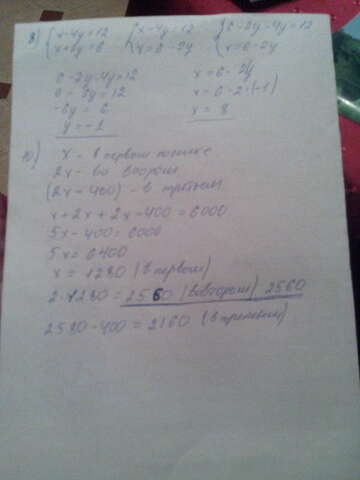 9) { x-4y=12 { x-4y=12 { 6-2y-4y=12
x+2y=6 x=6-2y x=6-2y
6-2y-4y=12 x=6-2y
6-6y=12 x=6-2·(-1)
-6y=6 x=8
y=-1
10) x - в первом посылке
2x - во втором
(2x-400) - в третьем
x+2x+2x-400=6000
5x-400=6000
5x=6400
x=1280 (в первом)
2·1280=2560 (во втором) 2560
2580-400=2160 (в третьем)